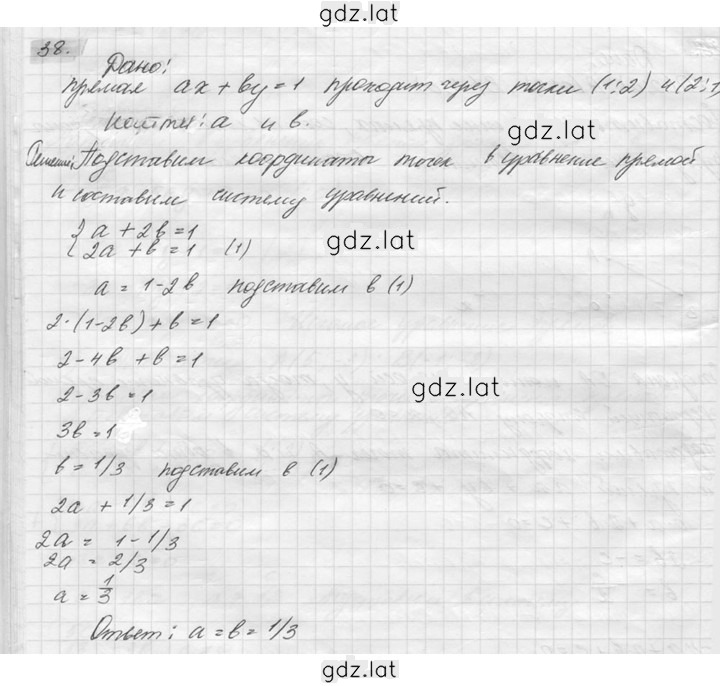 gdz.lat
38.
Дано:
прямая ax + by = 1 проходит через точки (1;2) и (2;1)
Найти: a и b.
gdz.lat
Решение: Подставим координаты точек в уравнение прямой
и составим систему уравнений.
{ a + 2b = 1
{ 2a + b = 1 (1)
gdz.lat
a = 1-2b подставим в (1)
2·(1-2b) + b = 1
2-4b + b = 1
2-3b = 1
gdz.lat
3b = 1
b = 1/3 подставим в (1)
2a + 1/3 = 1
2a = 1 - 1/3
2a = 2/3
a = 1/3
Ответ: a = b = 1/3
gdz.lat